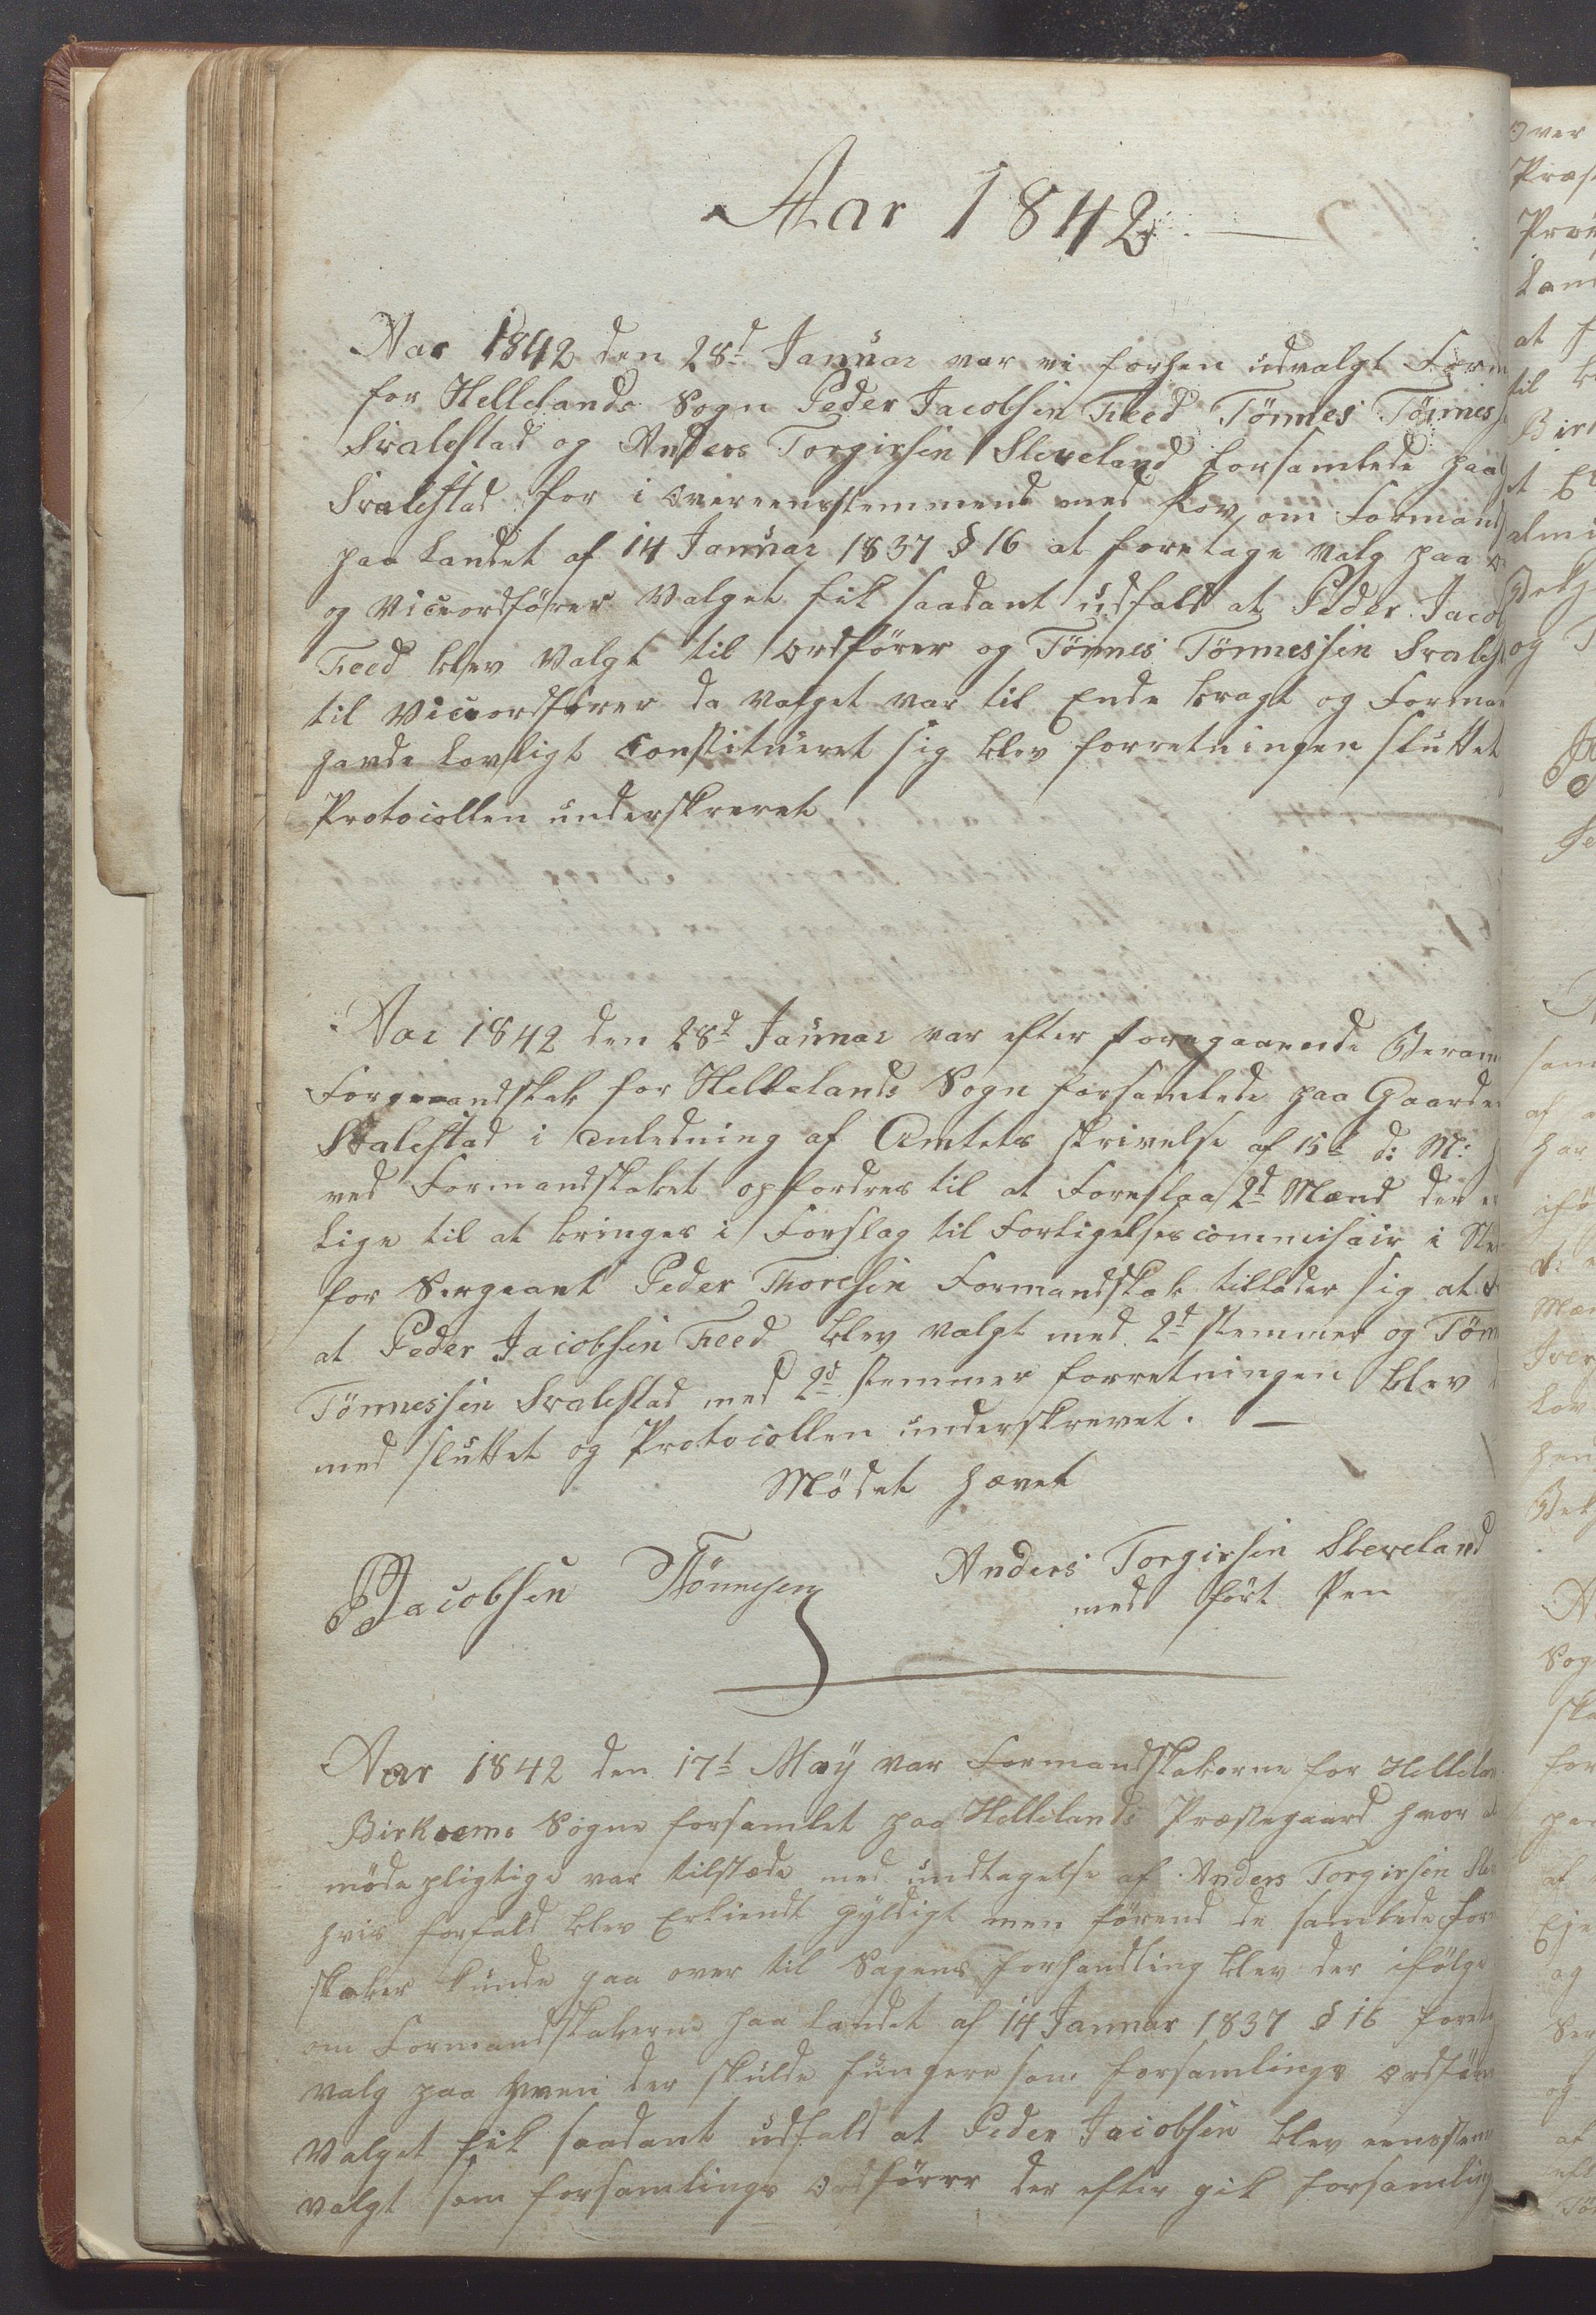 Aar 1842
Aar 1842 den 28d Januar var vi forhen udvalgt Form
for Hellelands Sogn Peder Jacobsen Feed Tönnes Tönnes
Svalestad og Anders Torgirsen Sleveland forsamlede paa
Svalestad for i overeenstemmend med Lov om Formand
paa Landet af 14 Januar 1837 § 16 at foretage Valg paa
og Viceordförer Valget fik saadant udfald at Peder Jacob
Feed blev Valgt til Ordförer og Tönnes Tönnessen Svalest
til Viceordförer da valget var til Ende bragt og Forman
havde Lovligt Constitueret sig blev forretningen sluttet
Protocollen underskrevet
Aar 1842 den 28d Januar var efter foregaaende Beram
Formandskab for Hellelands Sogn forsamlede paa Gaarden
Svalestad i Anledning af Amtets skrivelse af 15d d: M:
ved Formandskabet opfordres til at Foreslaa 2d Mænd der
lige til at bringes i Forslag til Forligelses commisair i Ste
for Sergeant Peder Thoresen Formandskab tillader sig at
at Peder Jacobsen Feed blev valgt med 2d stemmer og Tönn
Tönnessen Svalestad med 2d stemmer forretningen blev
med sluttet og Protocollen underskrevet. —
Mödet hævet
PJacobsen TTönnesen Anders Torgirsen Sleveland
med fört Pen
Aar 1842 den 17d Maÿ var Formandskaberne for Hellelan
Birkrems Sogne forsamlet paa Hellelands Præstegaard hvor
möde pligtige var tilstæde med undtagelse af Anders Torgirsen Sle
hvis forfald blev Erkiendt gyldigt men förend de samlede For
skaber kunde gaa over til Sagens forhandling blev der ifölge
om Formandskaberne paa Landet af 14 Januar 1837 § 16 foreta
valg paa hvem der skulde fungere som forsamlings Ordförer
Valget fik saadant udfald at Peder Jacobsen blev eensstem
valgt som forsamlings Ordförer der efter gik forsamling